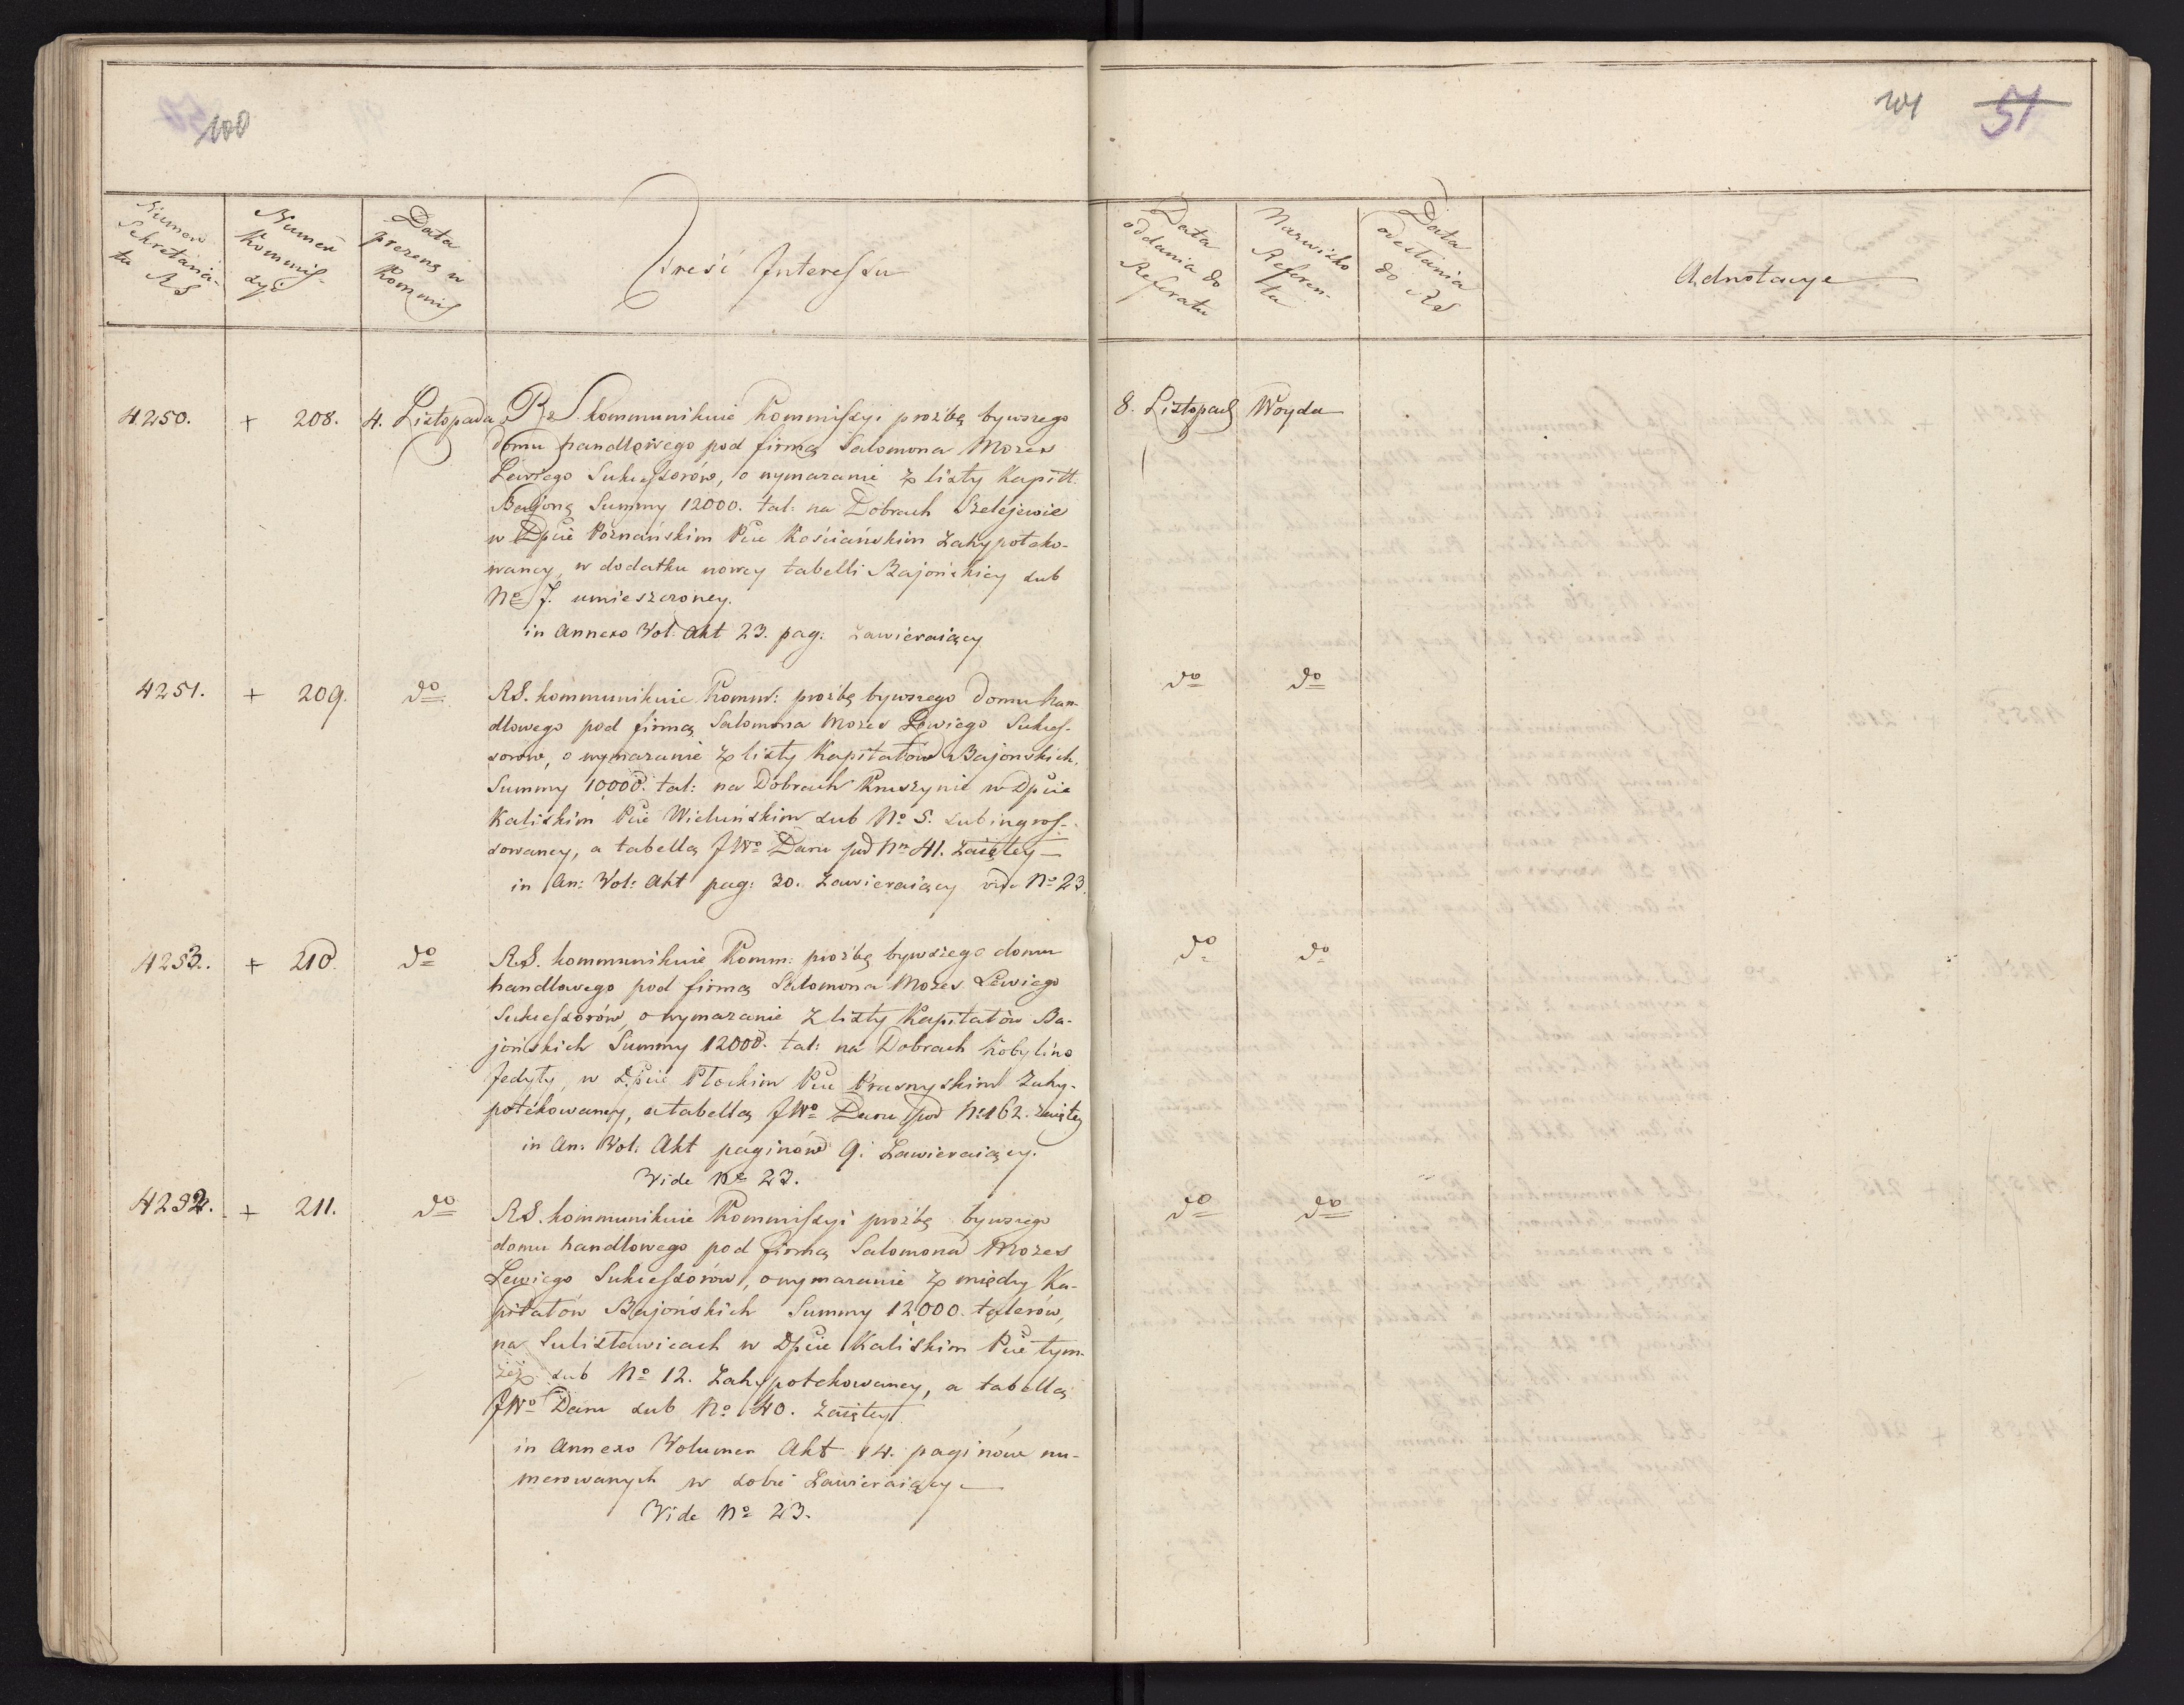 100
101 51
Numer Sekretaria-
tu RS
Numer
Kommis-
syi
Data
prezent: w
Kommis
Treść Interessu
Data
oddania do
Referatu
Nazwisko
Referen-
ta
Data
odesłania
do RS
Adnotacye
4250. + 208. 4. Listopada RS. kommunikuie Kommissyi prożbę bywszego
domu handlowego pod firmą Salomona Mozes
Lewiego Sukcessorów, o wymazanie z listy Kapitt.
Bajoną Summy 12000. tal: na Dobrach Szelejewie
w Dpcie Poznańskim Pcie Kościańskim zahypoteko-
waney, w dodatku nowey tabelli Bajońskiey sub
No 7. umieszczoney.
in Annexo Vol: Akt 23. pag: zawieraiący
8. Listopad Woyda
4251. + 209. do RS. kommunikuie Komm: prożbę bywszego domu han-
dlowego pod firmą Salomona Mozes Lewiego Sukces-
sorów, o wymazanie z listy Kapitałów Bajonskich.
Summy 10000. tal: na Dobrach Kruszynie w Dpcie
Kaliskim Pcie Wieluńskim sub No 5. subingros-
sowaney, a tabellą JWo Daru pod Nm 41. zaiętey
in An: Vol: Akt pag: 30. zawieraiący vide No 23.
do do
4253. + 210. do RS. kommunikuie Komm: prożbę bywszego domu
handlowego pod firmą Salomona Mozes Lewiego
Sukcessorów, o wymazanie z listy Kapitałów Ba-
jońskich Summy 12000. tal: na Dobrach Kobylino
Jedyty, w Dpcie Płockim Pcie Prasnyskim zahy-
potekowaney, a tabellą JWo Daru pod No 162. zaiętey
in An: Vol: Akt paginów 9. zawieraiący.
Vide No 23.
do do
4252. + 211. do RS. kommunikuie Kommissyi prożbę bywszego
domu handlowego pod firmą Salomona Mozes
Lewiego Sukcessorów, o wymazanie z między Ka-
pitałów Bajońskich Summy 12000. talerów,
na Sulisławicach w Dpcie Kaliskim Pcie tym-
żeż sub No 12. zahypotekowaney, a tabellą
JWo Daru sub No 140. zaiętey.
in Annexo Volumen Akt 14. paginów nu-
merowanych w sobie zawieraiący
Vide No 23.
do do